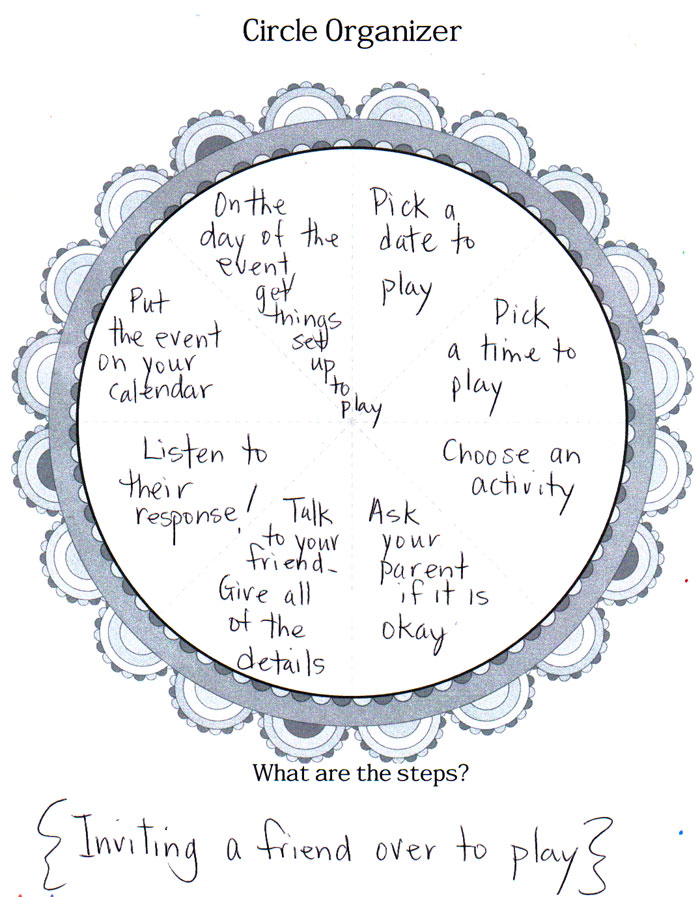 Circle Organizer
Pick a
date to
play
Pick
a time to
play
Choose an
activity
Ask
your
parent
if it is
okay
Talk
to your
friend-
Give all
of the
details
Listen to
their
response!
Put
the event
on your
calendar
On the
day of the
event
get
things
set
up
to
play
What are the steps?
{Inviting a friend over to play}